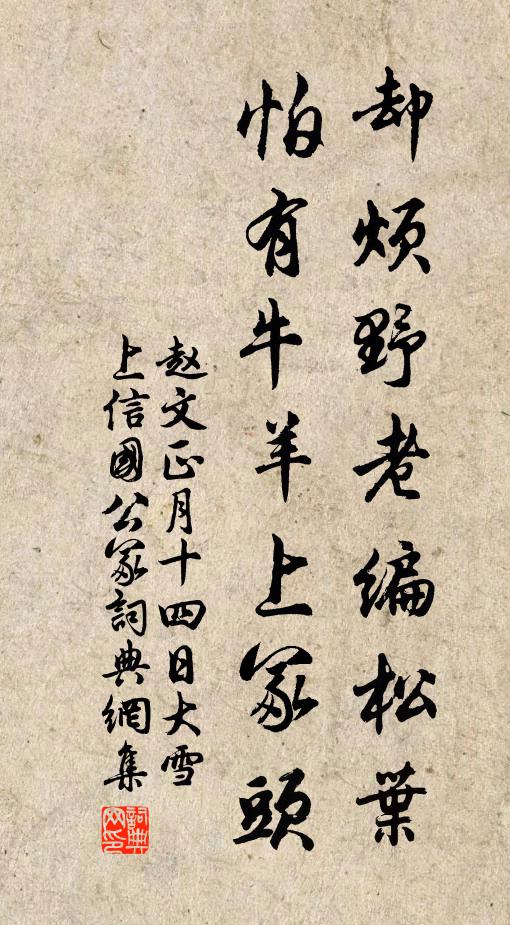 却烦野老编松葉
怕有牛羊上冢頭
赵文正月十四日大雪
上信國公冢詞典網集
詞典
网印